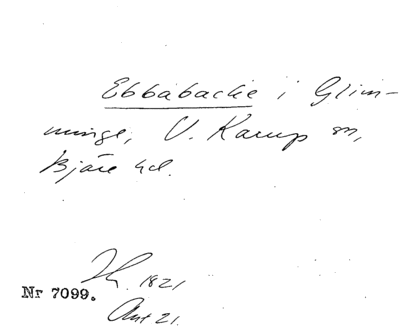 Ebbabacke i Glim-
minge, V. Karup sn,
Bjäre hd.
1821
Nr 7099.
Akt 21.